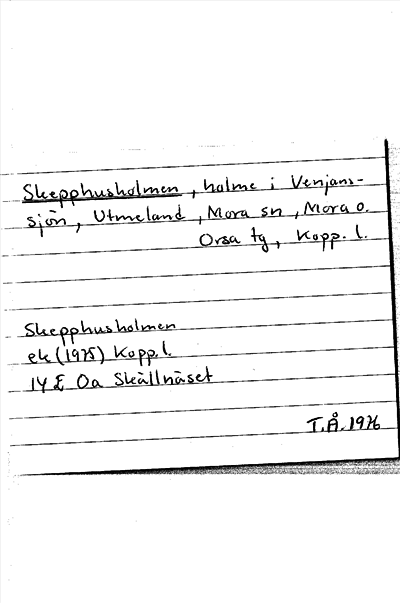 Skepphusholmen, holme i Venjans-
sjön, Utmeland, Mora sn, Mora o.
Orsa tg, Kopp. l.
Skepphusholmen
ek (1975) Kopp. l.
14 E 0a Skällnäset
T.Å. 1976